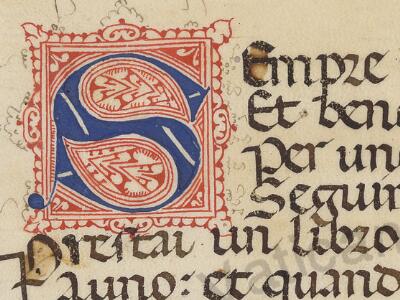 SEmpre
Et ben
Per un
Seguir
Prestai un libro
Pauno: et quand